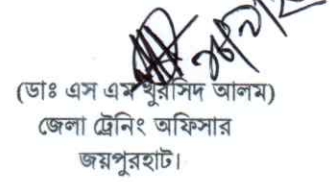 (ডাঃ এস এম খুরসিদ আলম)
জেলা ট্রেনিং অফিসার
জয়পুরহাট।